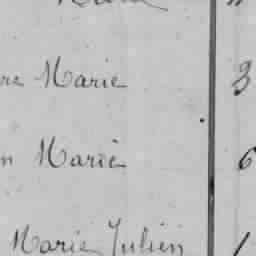 re Marie 3
n Marie 6
Marie Julien 1